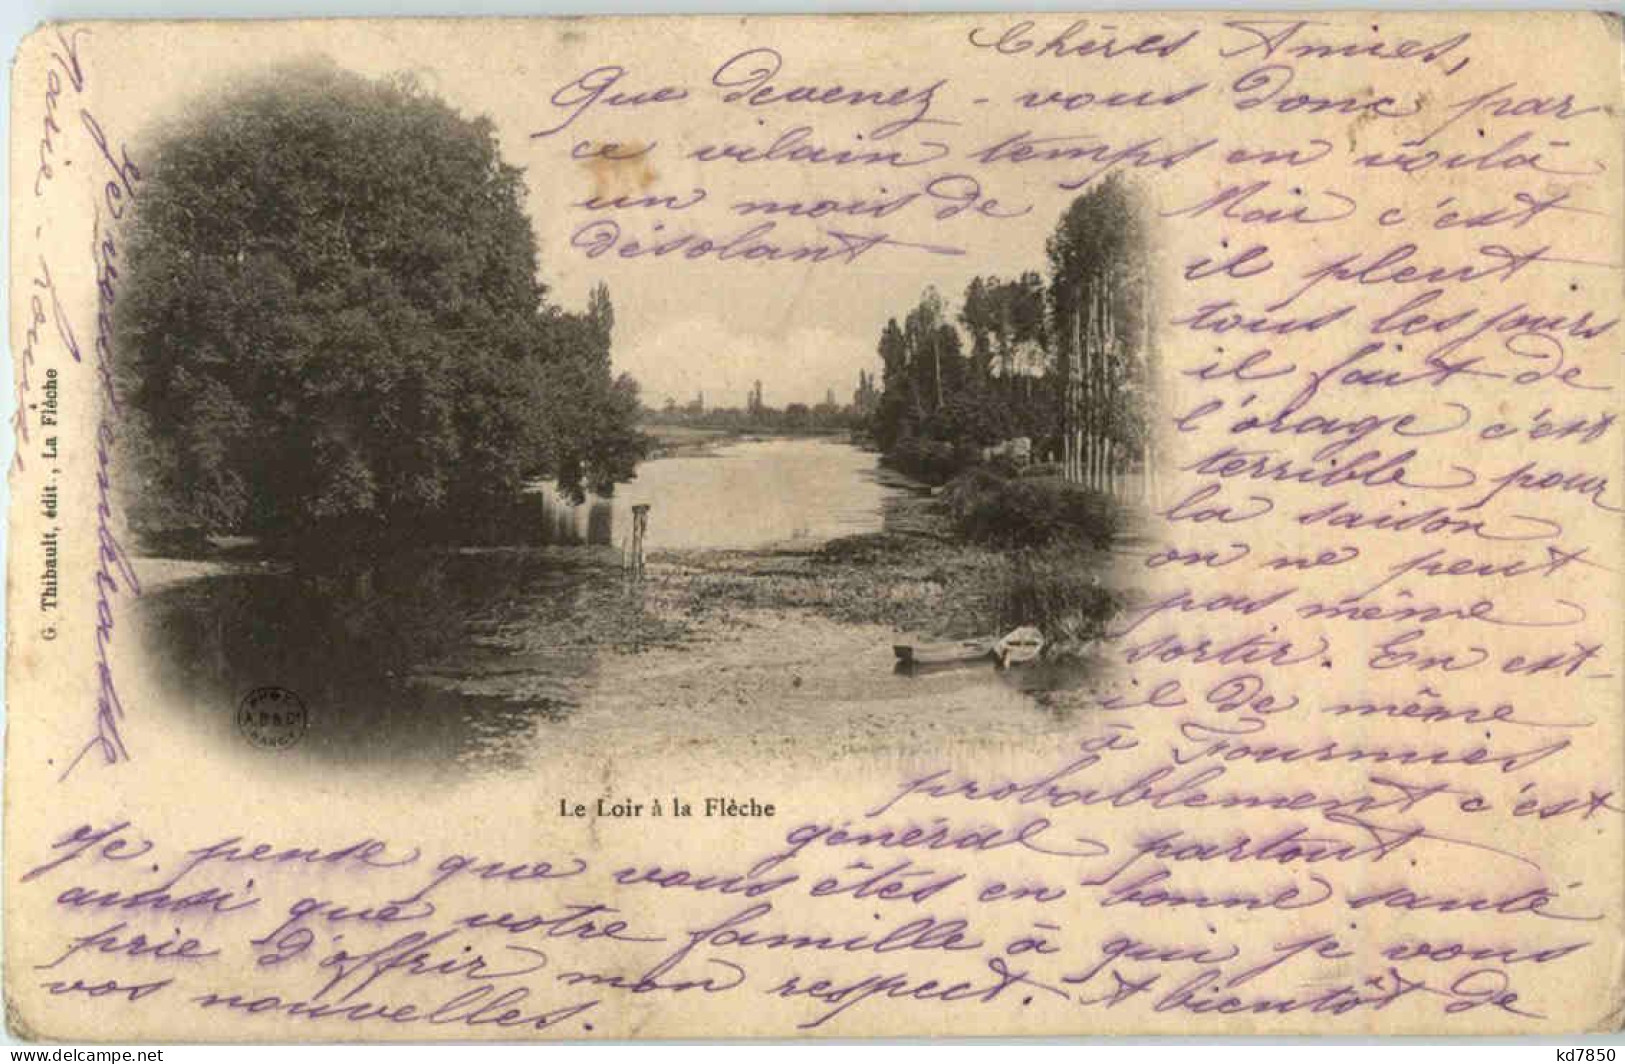 Chères Amies,
Que devenez-vous donc par
ce vilain temps en voilà
un mois de
désolant
Moi c'est
il pleut
tous les jours
il fait de
l'orage c'est
terrible pour
la saison
on ne peut
pas même
sortir. En est-
il de même
à Fourmies
probablement c'est
général partout.
Je pense que vous êtes en bonne santé
ainsi que votre famille à qui je vous
prie d'offrir mon respect. A bientôt de
vos nouvelles.
Je vous embrasse
Le Loir à la Flèche
G. Thibault, édit., La Flèche
PHOT
A.B & Cie
NANCY
kd7850